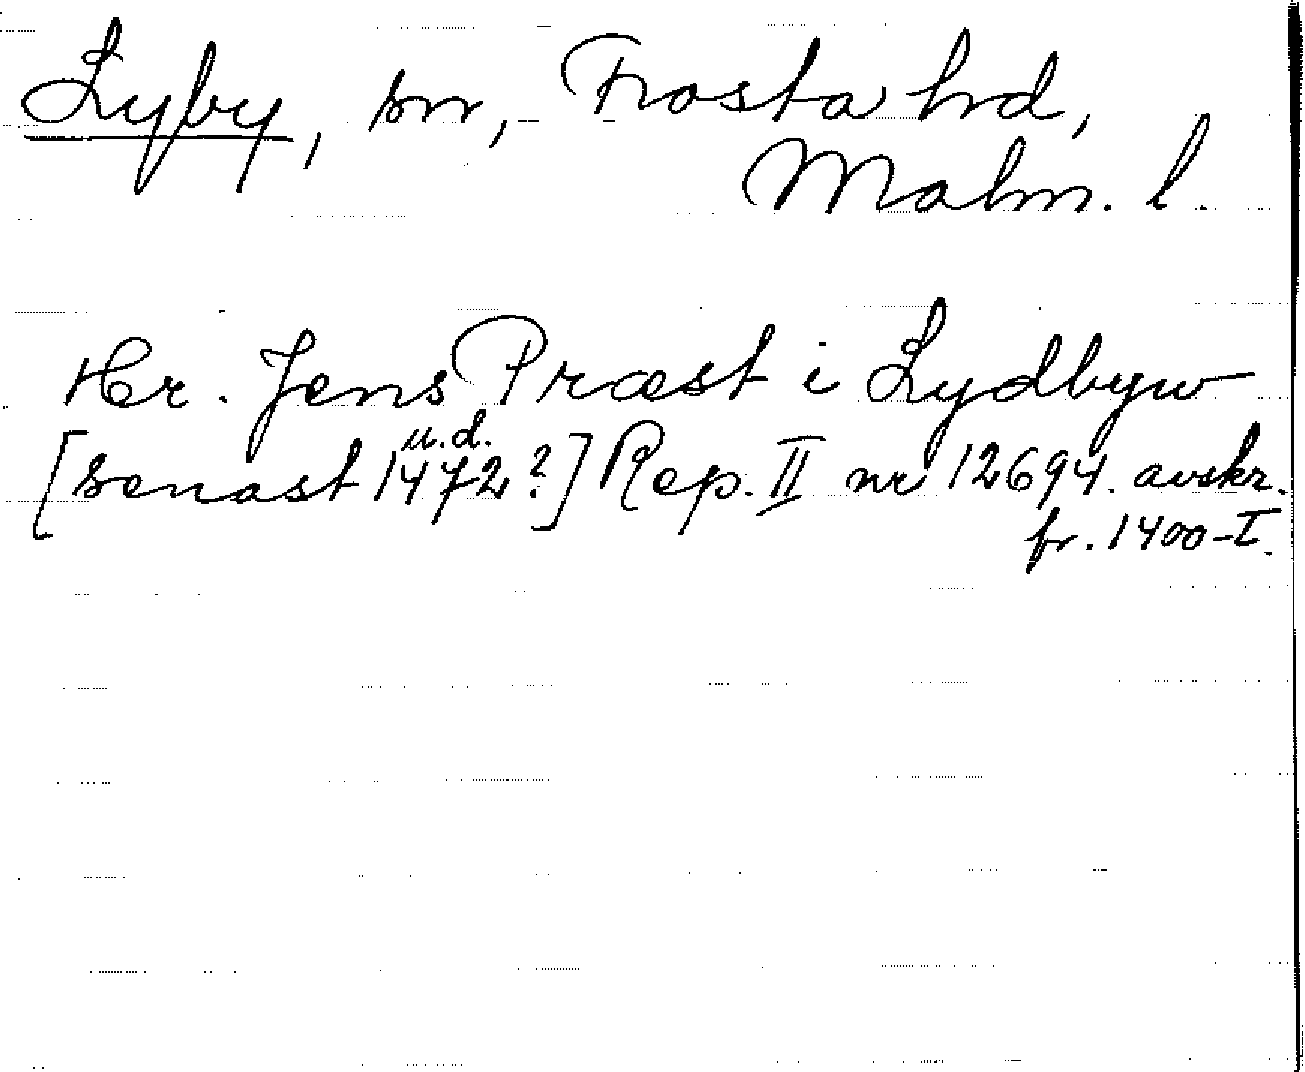 Lyby, sn, Frosta hd,
Malm. l.
Hr. Jens Præst i Lydbyw
u.d.
[senast 1472?] Rep. II nr 12694. avskr.
fr. 1400-T.